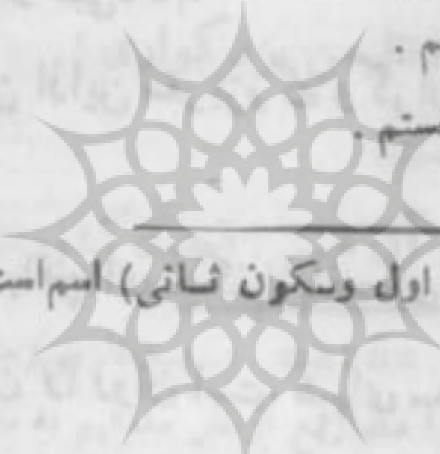 م .
ستم .
اول وسکون ثانی) اسم‌است